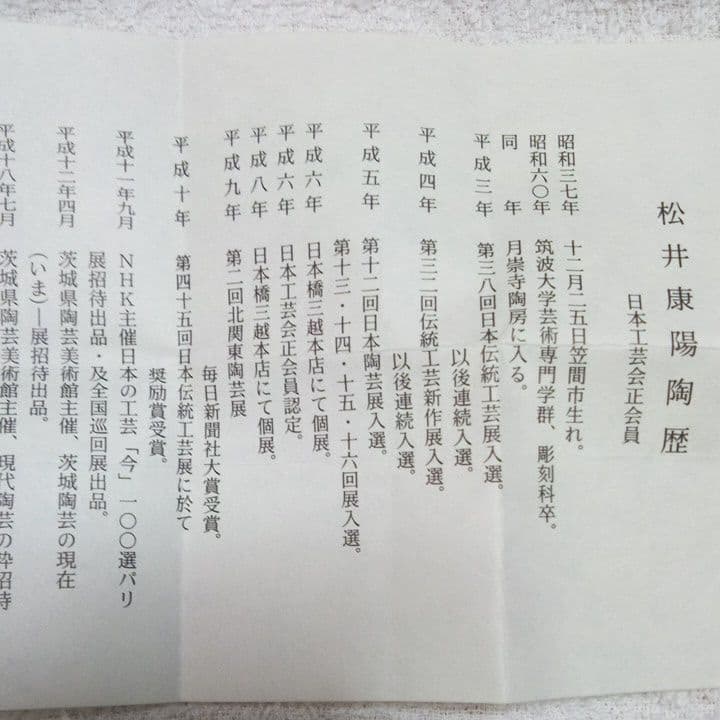 松井康陽陶歴
日本工芸会正会員
昭和三七年 十二月二五日笠間市生れ。
昭和六〇年 筑波大学芸術専門学群、彫刻科卒。
同年 月崇寺陶房に入る。
平成三年 第三八回日本伝統工芸展入選。
以後連続入選。
平成四年 第三二回伝統工芸新作展入選。
以後連続入選。
平成五年 第十二回日本陶芸展入選。
第十三・十四・十五・十六回展入選。
平成六年 日本橋三越本店にて個展。
平成六年 日本工芸会正会員認定。
平成八年 日本橋三越本店にて個展。
平成九年 第二回北関東陶芸展
毎日新聞社大賞受賞。
平成十年 第四十五回日本伝統工芸展に於て
奨励賞受賞。
平成十一年九月 NHK主催日本の工芸「今」一〇〇選パリ
展招待出品・及全国巡回展出品。
平成十二年四月 茨城県陶芸美術館主催、茨城陶芸の現在
(いま)―展招待出品。
平成十八年七月 茨城県陶芸美術館主催、現代陶芸の粋招待